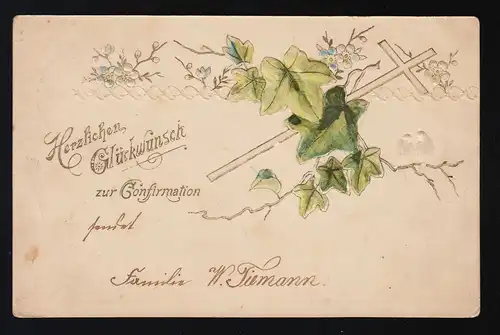 Herzlichen
Glückwunsch
zur Confirmation
sendet
Familie W. Tiemann.